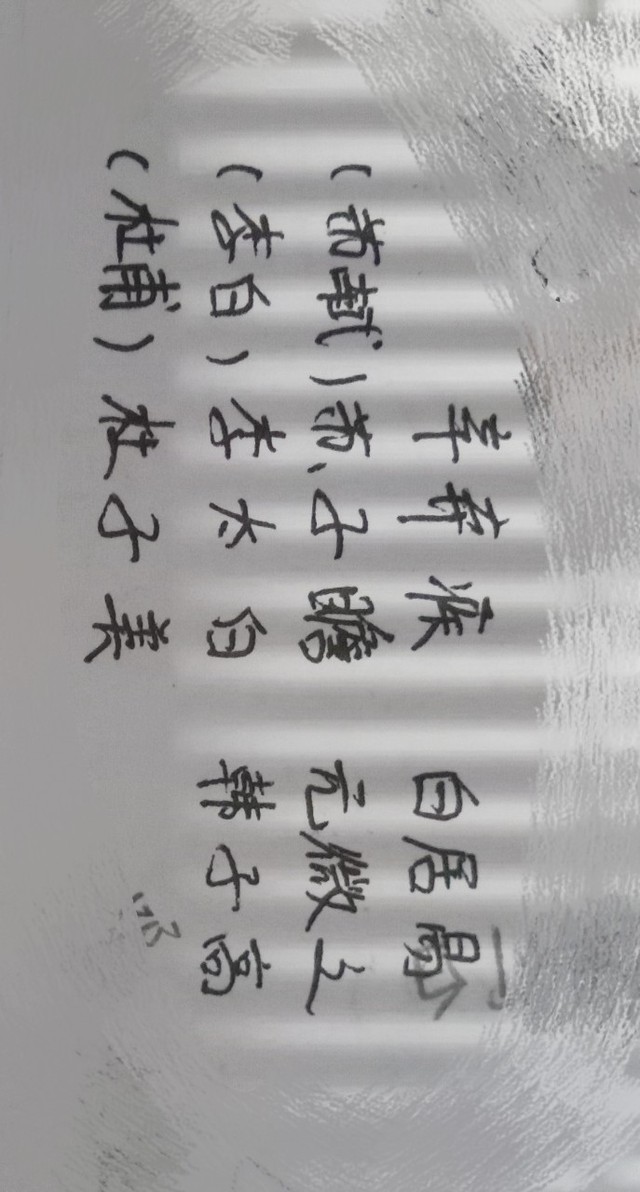 辛弃疾
(苏轼)苏子瞻
(李白)李太白
(杜甫)杜子美
白居易
元微之
韩子高